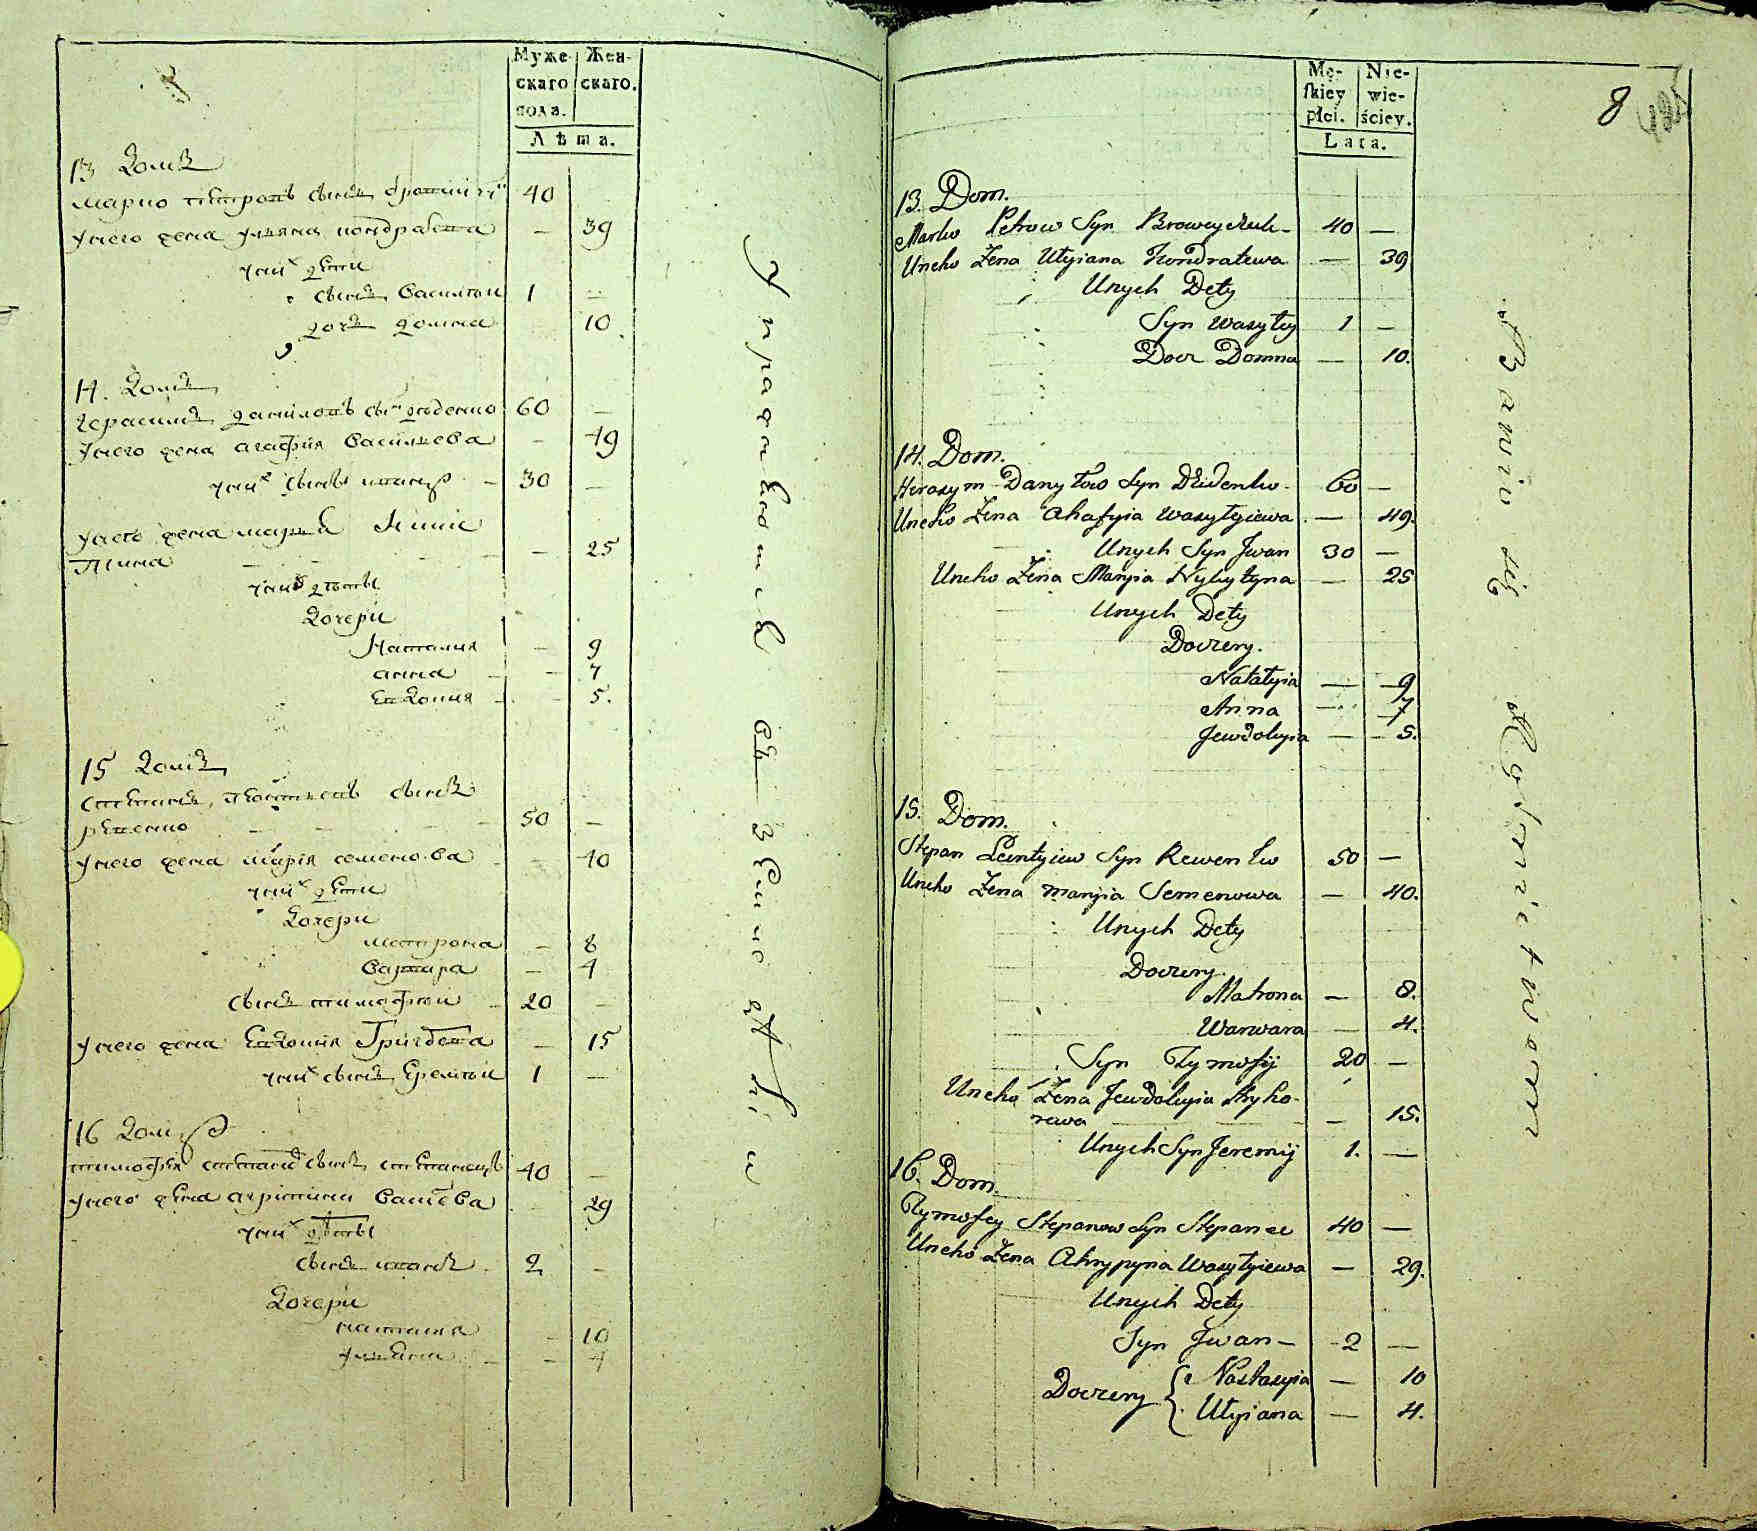 Муже-
скаго
пола.
Жен-
скаго.
Лѣта.
13 Домъ
Марко Петровъ сынъ 40
У него жена Уляна Кондратева — 39
У них дети
сынъ Василий 1 —
дочь Домна 10
14. Домъ
Герасимъ Даниловъ сынъ Диденко 60 —
У него жена Агафия Василиева — 49
У них сынъ Иванъ — 30 —
У него жена Мария
— 25
У них дѣти
Дочери
Наталия — 9
Анна — 7
Евдокия — 5.
15 Домъ
Степанъ Леонтиевъ сынъ
Ревенко 50 —
У него жена Мария Семенова 40
У них дети
Дочери
Матрона — 8
Варвара — 4
Сынъ Тимофий — 20 —
У него жена Евдокия Григорева — 15
У них сынъ Еремий 1 —
16 Домъ
Тимофей Степановъ сынъ Степанецъ 40 —
У него жена Агрипина 29
У них дѣти
Сынъ Иванъ 2 —
Дочери
10
Улияна — 4
Упражняются въ земледѣлии
8
Mę-
ſkiey
płci.
Nie-
wie-
ściey.
Lata.
13. Dom.
Marko Petrow Syn Broweyczuk — 40 —
Uneho Żena Ulyiana Kondratewa — 39
Unych Dety
Syn Wasyley 1 —
Docz Domna — 10.
14. Dom.
Herasym Danyłow Syn Dīdenko — 60 —
Uneho Żena Ahafyia Wasyłyiewa — 49.
Unych Syn Jwan 30 —
Uneho Żena Maryia Nykytyna — 25
Unych Dety
Doczery.
Natałyia — 9
Anna — 7
Jewdokyia — 5.
15. Dom.
Stepan Leontyiew Syn Rewenko 50 —
Uneho Żena Maryia Semenowa — 40.
Unych Dety
Doczery.
Matrona — 8.
Warwara — 4.
Syn Tymofij 20 —
Uneho Żena Jewdokyia Hryho-
rewa — 15.
Unych Syn Jeremij 1. —
16. Dom.
Tymofey Stepanow Syn Stepanec 40 —
Uneho Żena Ahrypyna Wasyłyiewa — 29.
Unych Dety
Syn Jwan — 2 —
Doczery { Nastasyia — 10
Ulyiana — 4.
Bawią się Rolnictwem